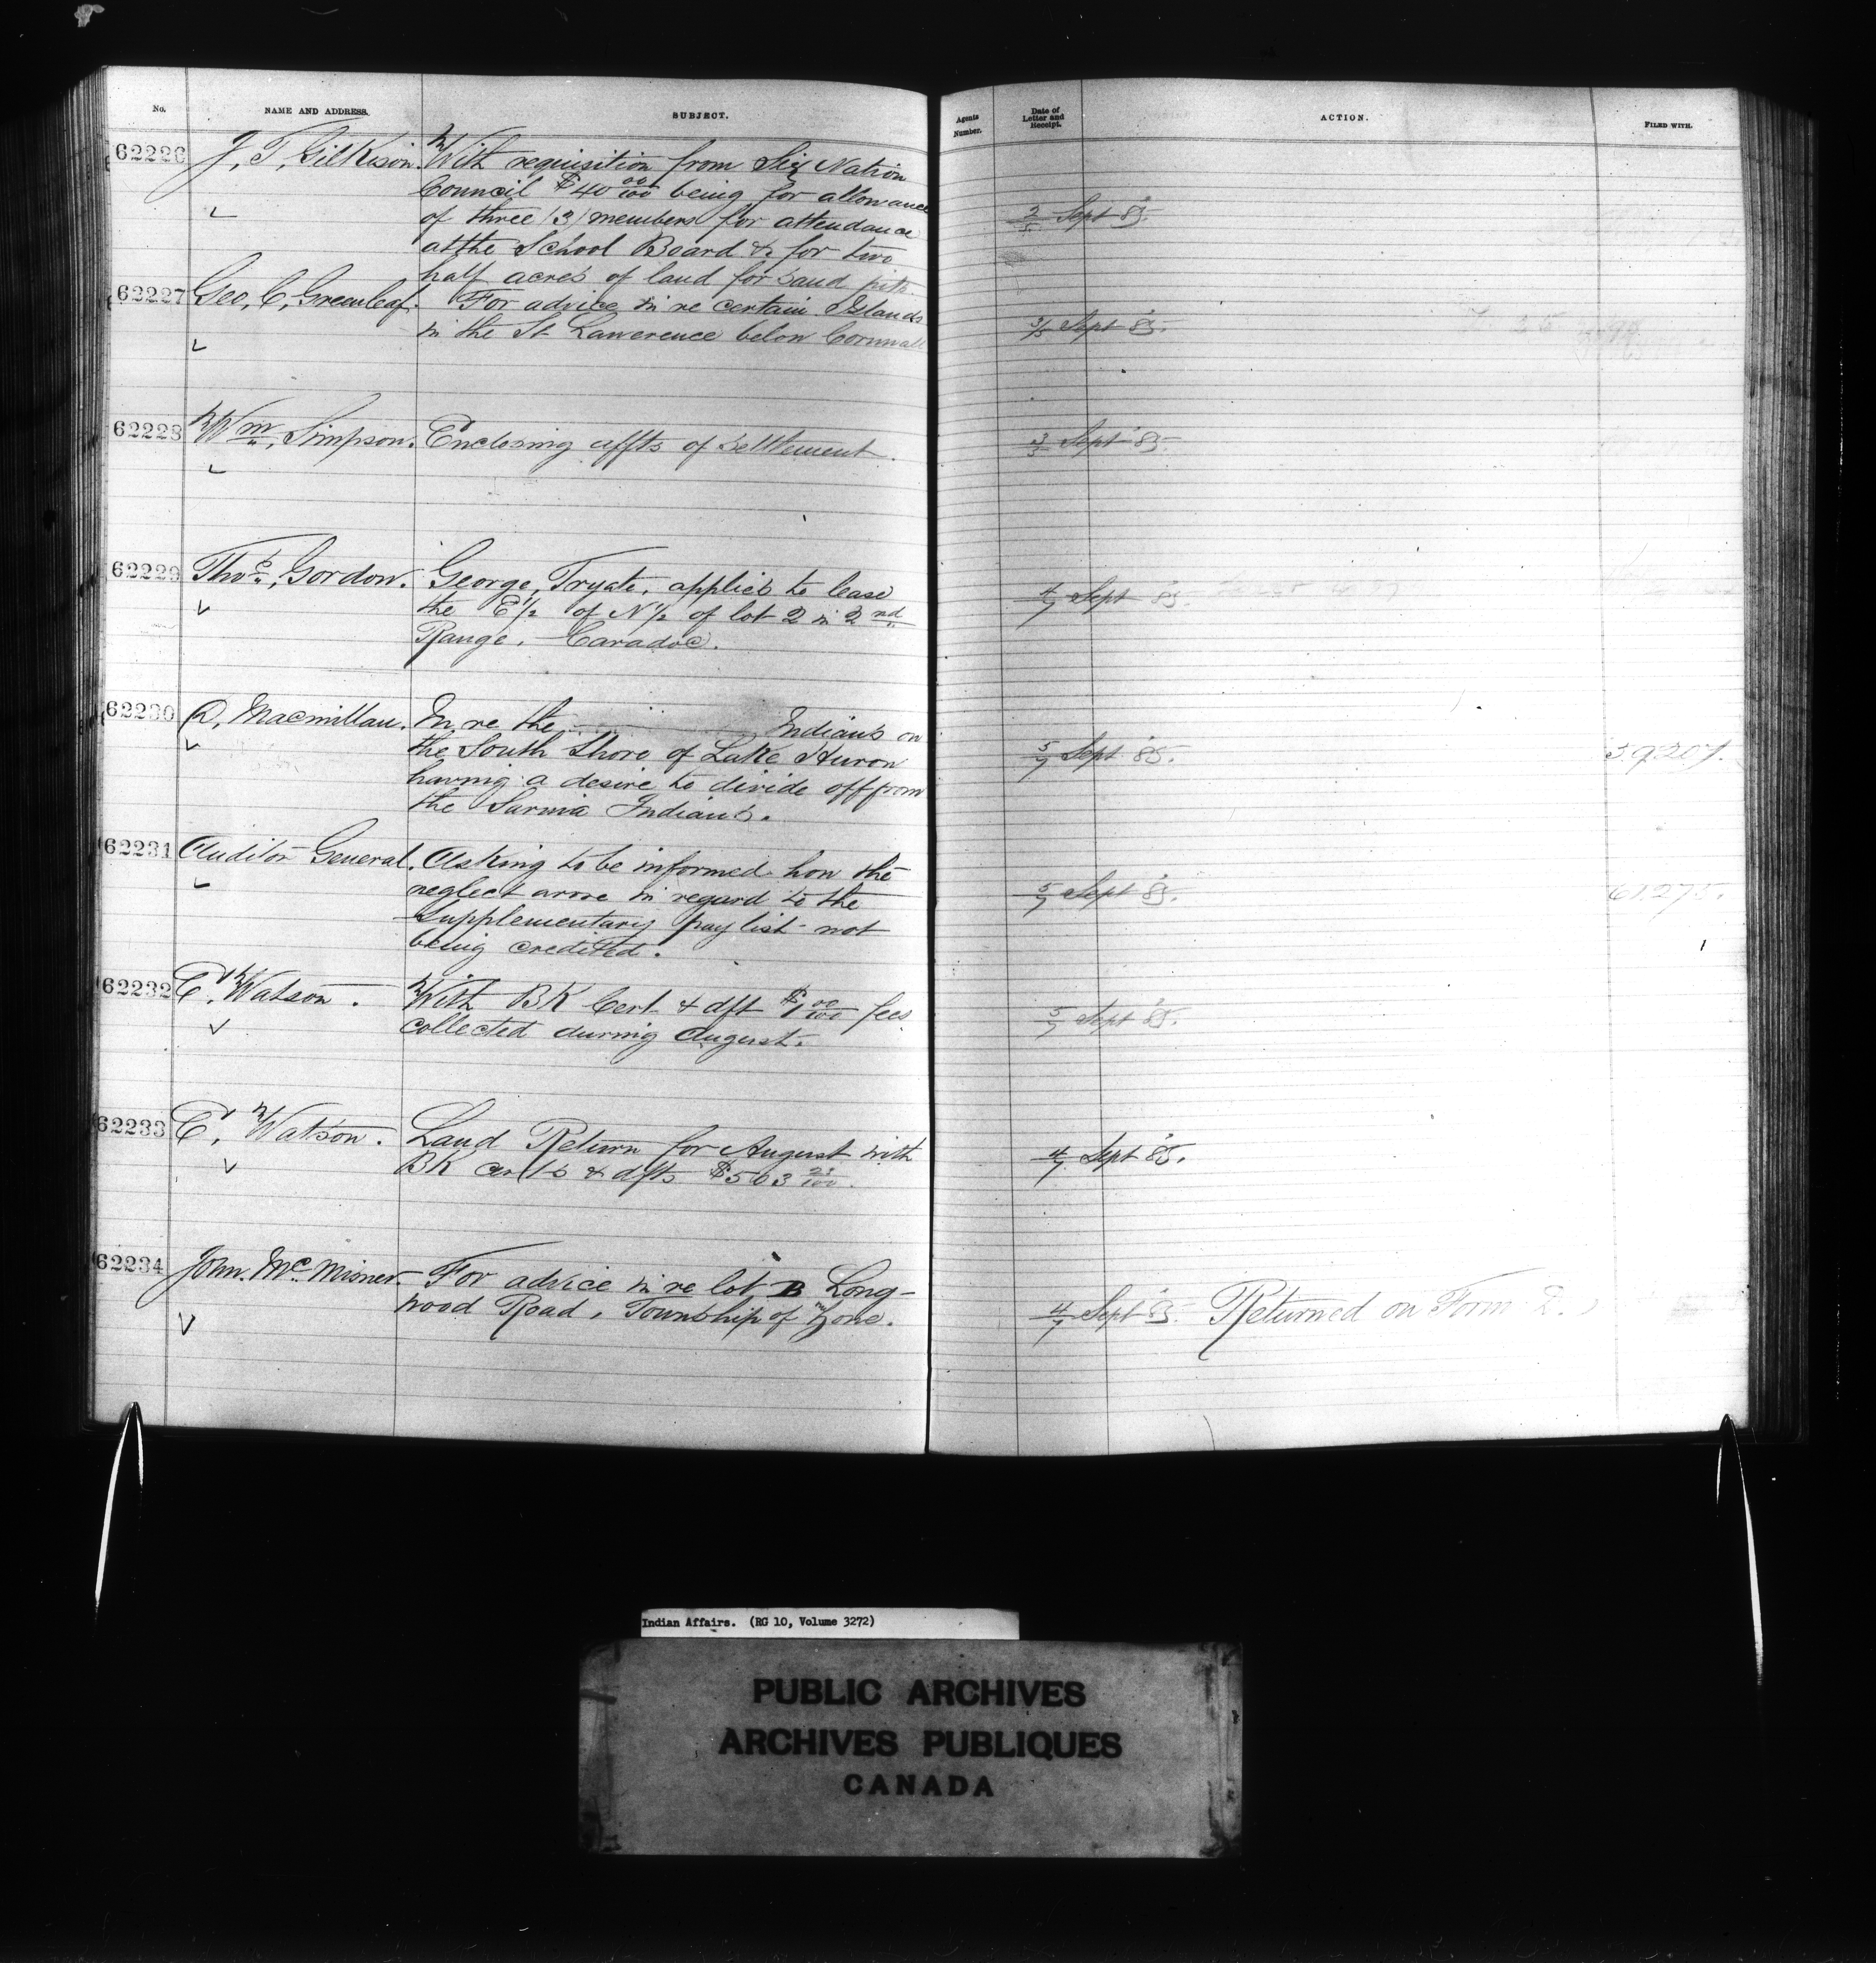 No. NAME AND ADDRESS. SUBJECT. Agents Number. Date of Letter and Receipt. ACTION. FILED WITH.
62226 J, T, Gilkison. With requisition from Six Nation
Council $40 00/100 being for allowance
of three (3) members for attendance 2/5 Sept 85.
at the School Board & for two
half acres of land for sand pits
62227 Geo, C, Greenleaf. For advice in re certain Islands
in the St Lawerence below Cornwall 3/5 Sept 85.
62228 Wm, Simpson. Enclosing affts of settlement. 3/5 Sept 85.
62229 Thos, Gordon. George, Tryate, applies to lease
the E 1/2 of N 1/2 of lot 2 in 2nd 4/7 Sept 85.
Range. Caradoc.
62230 D, Macmillan. In re the Indians on
the South Shore of Lake Huron 5/7 Sept 85. 59207.
having a desire to divide off from
the Sarnia Indians.
62231 Auditor General. Asking to be informed how the
neglect arose in regard to the 5/7 Sept 85. 61,275.
Supplementary pay list not
being credited.
62232 E, Watson. With BK Cert & dft $1 00/100 fees
collected during August. 5/7 Sept 85.
62233 E, Watson. Land Return for August with
BK certs & dfts $503 23/100. 4/7 Sept 85.
62234 John. Mc Misner. For advice in re lot B Long-
wood Road, Township of Zone. 4/7 Sept 85. Returned on Form D.
Indian Affairs. (RG 10, Volume 3272)
PUBLIC ARCHIVES
ARCHIVES PUBLIQUES
CANADA